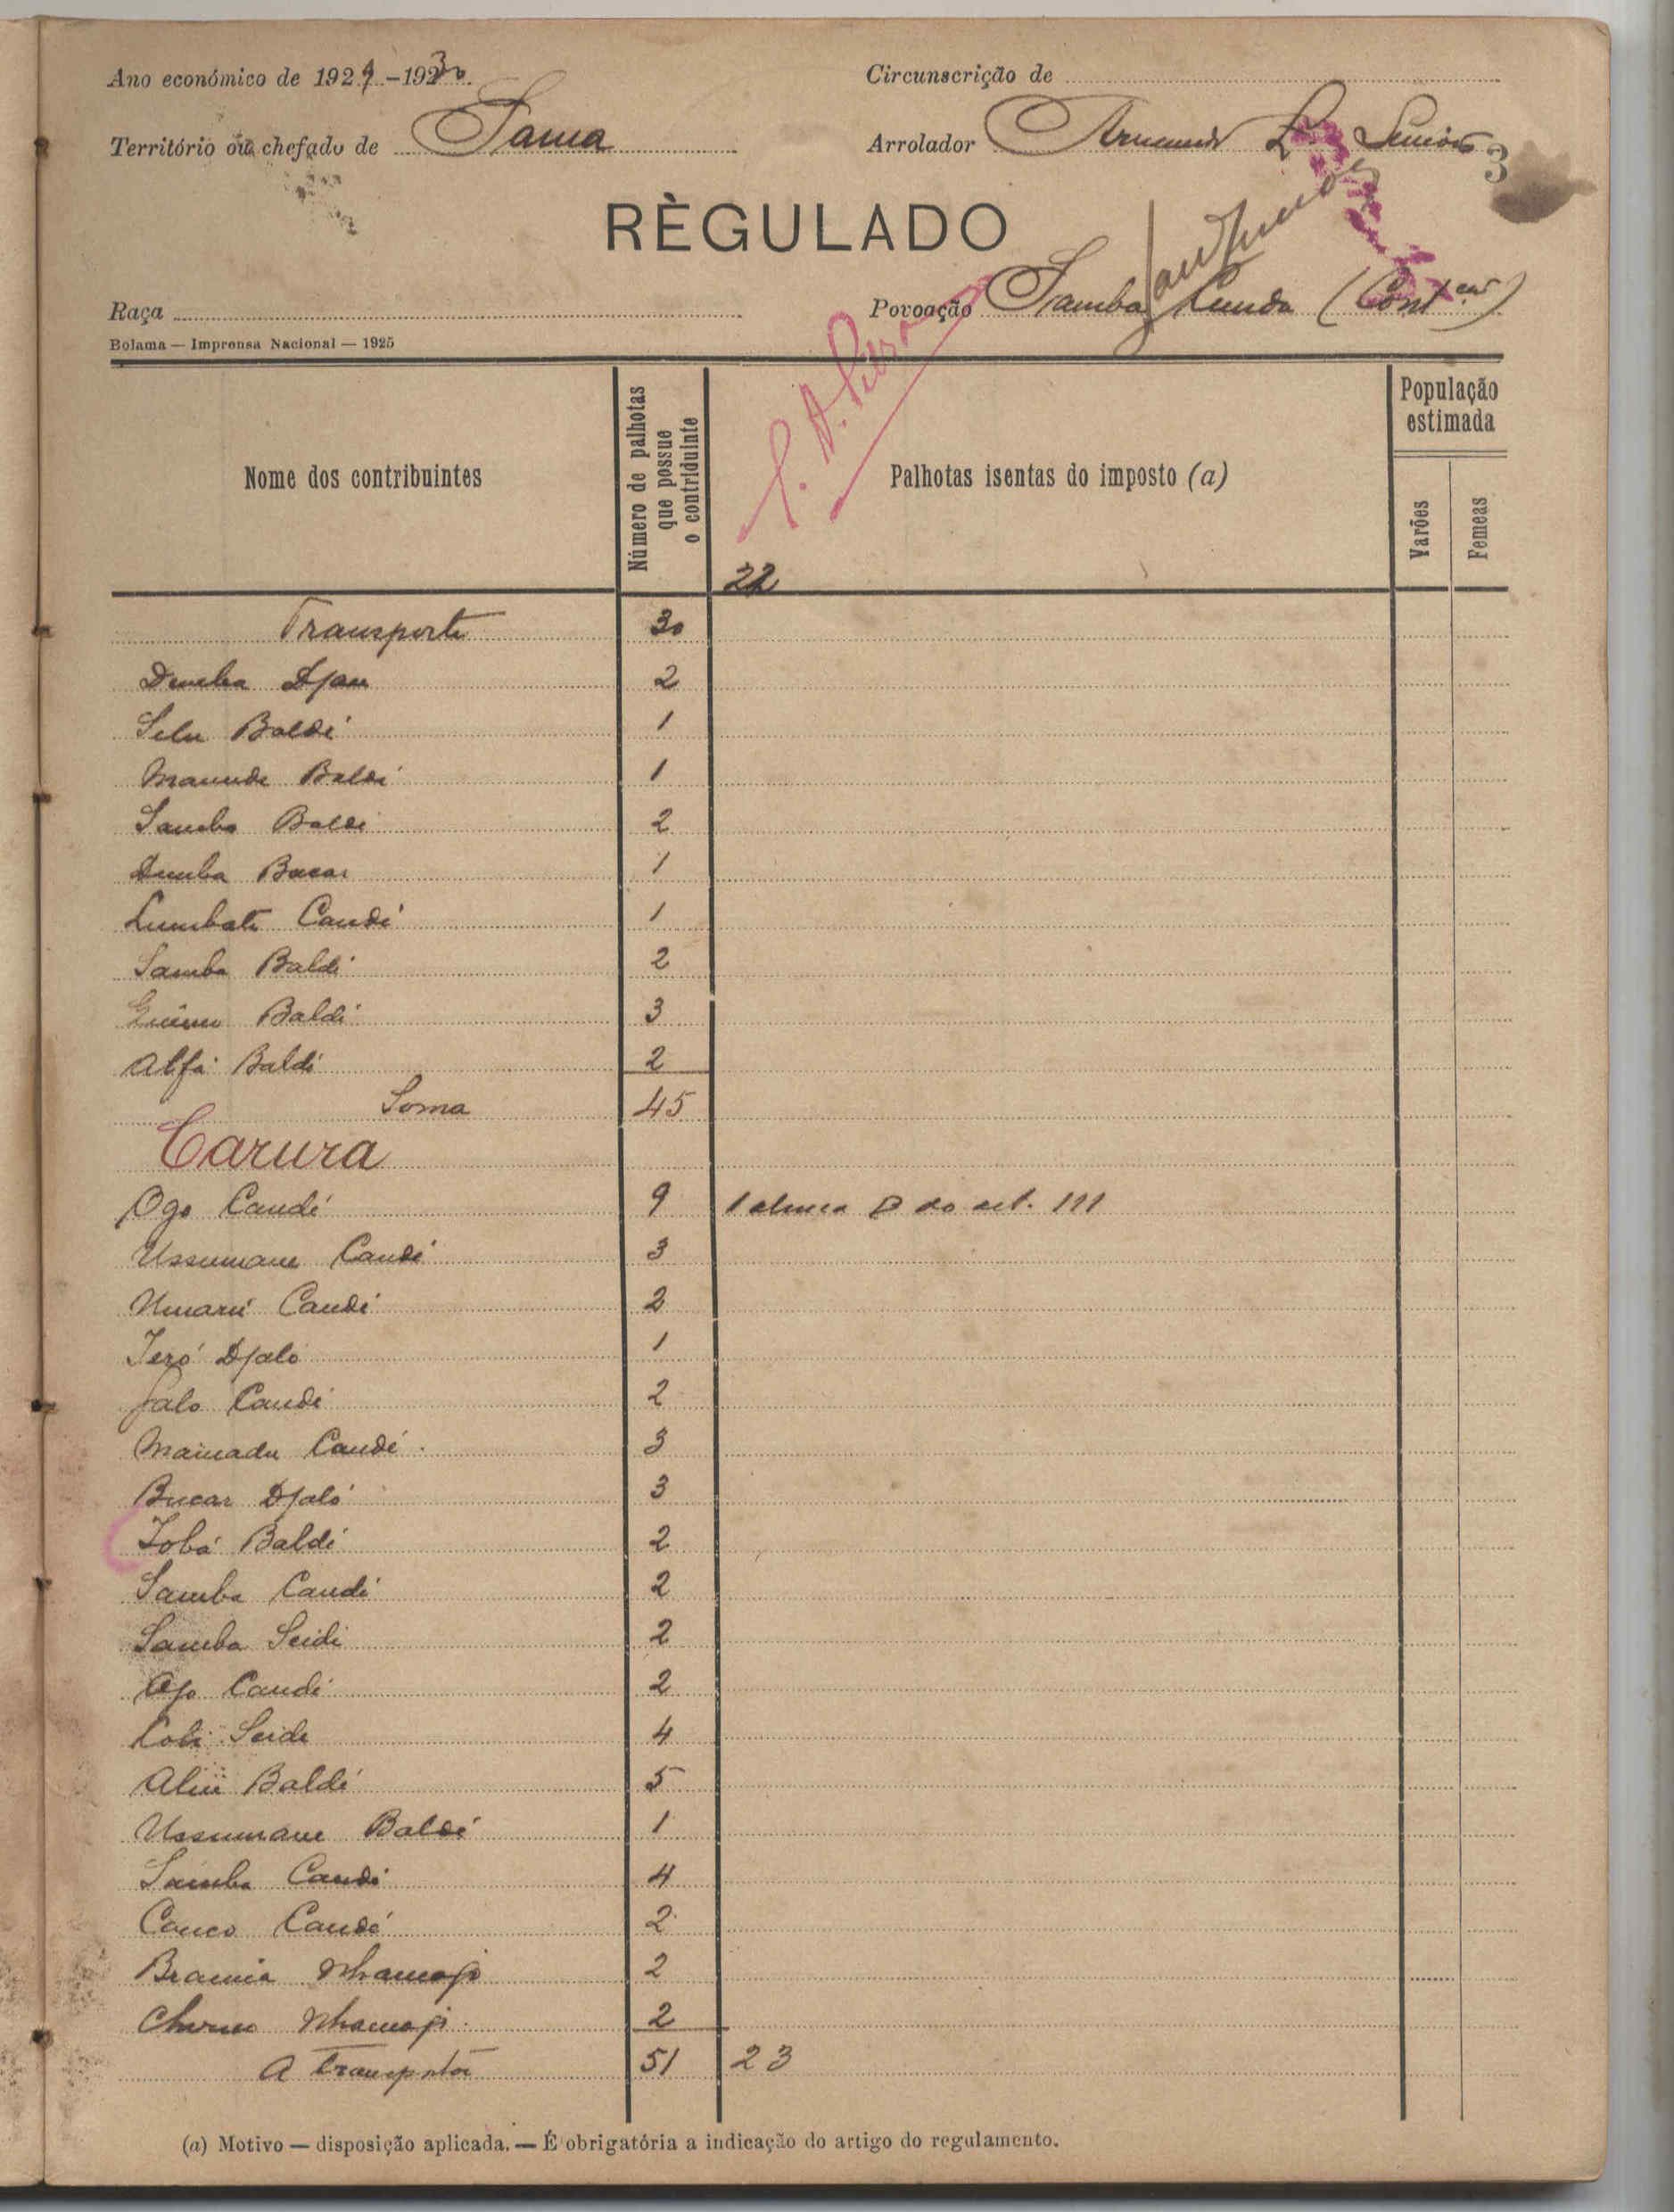 Ano económico de 1929-1930
Circunscrição de
Território ou chefado de Sama
Arrolador Armando L.
3
RÈGULADO
Raça
Povoação Samba Cunda (Cont
Bolama — Imprensa Nacional — 1925
Nome dos contribuintes
Número de palhotas que possue o contriduinte
Palhotas isentas do imposto (a)
População estimada
Varões
Femeas
22
Transporte 30
Demba Djau 2
Baldé 1
Baldé 1
Samba Baldé 2
Demba Bacar 1
Candé 1
Samba Baldé 2
Baldé 3
Alfa Baldé 2
Soma 45
Carura
Ogo Candé 9 1 D do art. 111
Ussumane Candé 3
Umarú Candé 2
Djaló 1
Candé 2
Mamadu Candé 3
Bucar Djaló 3
Baldé 2
Samba Candé 2
Samba Seidi 2
Candé 2
Seide 4
Aliu Baldé 5
Ussumane Baldé 1
Samba Candé 4
Candé 2
2
2
A transportar 51 23
(a) Motivo — disposição aplicada. — É obrigatória a indicação do artigo do regulamento.